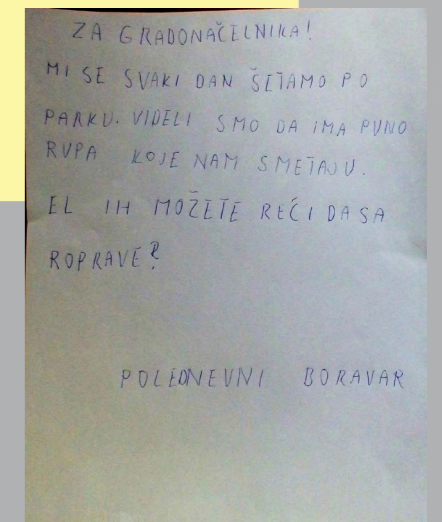 ZA GRADONAČELNIKA!
MI SE SVAKI DAN ŠETAMO PO
PARKU. VIDELI SMO DA IMA PUNO
RUPA KOJE NAM SMETAJU.
EL IH MOŽETE REĆI DA SA
ROPRAVE?
POLEDNEVNI BORAVAR